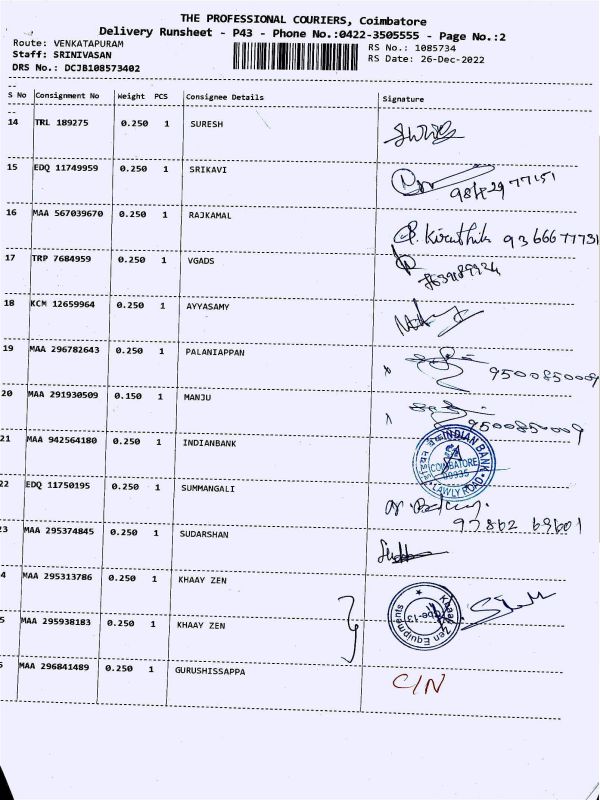 THE PROFESSIONAL COURIERS, Coimbatore
Delivery Runsheet - P43 - Phone No.:0422-3505555 - Page No.:2
Route: VENKATAPURAM RS No.: 1085734
Staff: SRINIVASAN RS Date: 26-Dec-2022
DRS No.: DCJB108573402
S No Consignment No Weight PCS Consignee Details Signature
14 TRL 189275 0.250 1 SURESH
15 EDQ 11749959 0.250 1 SRIKAVI
16 MAA 567039670 0.250 1 RAJKAMAL P. Kiruthika 9366677731
17 TRP 7684959 0.250 1 VGADS
18 KCM 12659964 0.250 1 AYYASAMY
19 MAA 296782643 0.250 1 PALANIAPPAN 9500850009
20 MAA 291930509 0.150 1 MANJU 9500850009
21 MAA 942564180 0.250 1 INDIANBANK INDIAN BANK COIMBATORE LAWLY ROAD
22 EDQ 11750195 0.250 1 SUMMANGALI 97862 69601
3 MAA 295374845 0.250 1 SUDARSHAN
4 MAA 295313786 0.250 1 KHAAY ZEN Khaay Zen Equipments
5 MAA 295938183 0.250 1 KHAAY ZEN
MAA 296841489 0.250 1 GURUSHISSAPPA C/N